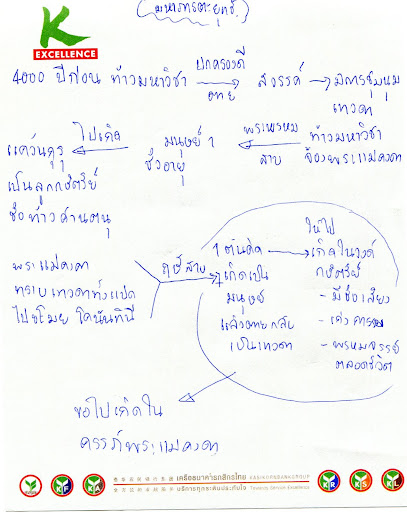 (มหาภารตะยุทธ์)
K
EXCELLENCE
4000 ปีก่อน ท้าวมหาวิชา ปกครองดี ตาย → สวรรค์ → มีการชุมนุม
เทวดา
ท้าวมหาวิชา
จ้องพระแม่คงคา
พระพรหม
สาบ
มนุษย์ 1
ชั่วอายุ
ไปเกิด
แคว้นกุรุ
เป็นลูกกษัตริย์
ชื่อท้าวศานตนุ
พระแม่คงคา
ทราบเทวดาทั้งแปด
ไปขโมย โคนันทินี
ฤๅษีสาบ
1 ต้นคิด
ให้ไป
เกิดในวงศ์
กษัตริย์
- มีชื่อเสียง
- เคร่งครัด
- พรหมจรรย์
ตลอดชีวิต
7 เกิดเป็น
มนุษย์
แล้วตายกลับ
เป็นเทวดา
ขอไปเกิดใน
ครรภ์พระแม่คงคา
เครือธนาคารกสิกรไทย KASIKORNBANKGROUP
บริการทุกระดับประทับใจ Towards Service Excellence